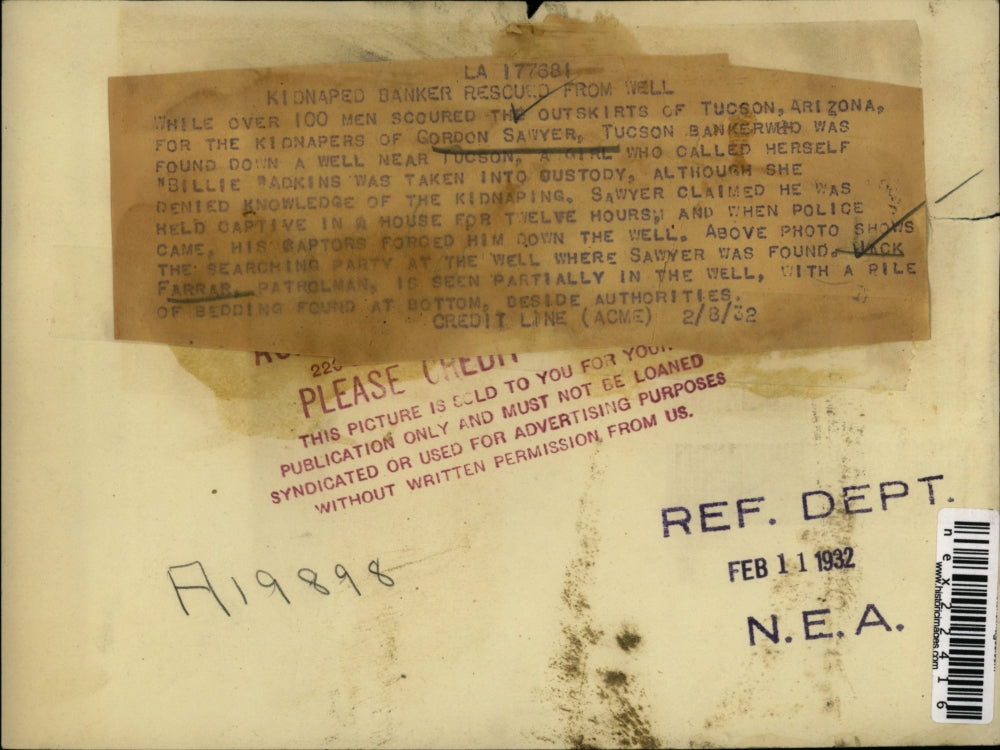 LA 177681
KIDNAPED BANKER RESCUED FROM WELL
WHILE OVER 100 MEN SCOURED THE OUTSKIRTS OF TUCSON, ARIZONA,
FOR THE KIDNAPERS OF GORDON SAWYER, TUCSON BANKERWHO WAS
FOUND DOWN A WELL NEAR TUCSON, A GIRL WHO CALLED HERSELF
"BILLIE "ADKINS WAS TAKEN INTO CUSTODY, ALTHOUGH SHE
DENIED KNOWLEDGE OF THE KIDNAPING. SAWYER CLAIMED HE WAS
HELD CAPTIVE IN A HOUSE FOR TWELVE HOURS, AND WHEN POLICE
CAME, HIS CAPTORS FORCED HIM DOWN THE WELL. ABOVE PHOTO SHOWS
THE SEARCHING PARTY AT THE WELL WHERE SAWYER WAS FOUND. JACK
FARRAR, PATROLMAN, IS SEEN PARTIALLY IN THE WELL, WITH A PILE
OF BEDDING FOUND AT BOTTOM, BESIDE AUTHORITIES.
CREDIT LINE (ACME) 2/8/32
PLEASE CREDIT
THIS PICTURE IS SOLD TO YOU FOR YOUR
PUBLICATION ONLY AND MUST NOT BE LOANED
SYNDICATED OR USED FOR ADVERTISING PURPOSES
WITHOUT WRITTEN PERMISSION FROM US.
A19898
REF. DEPT.
FEB 11 1932
N.E.A.
nex22416
www.historicimages.com